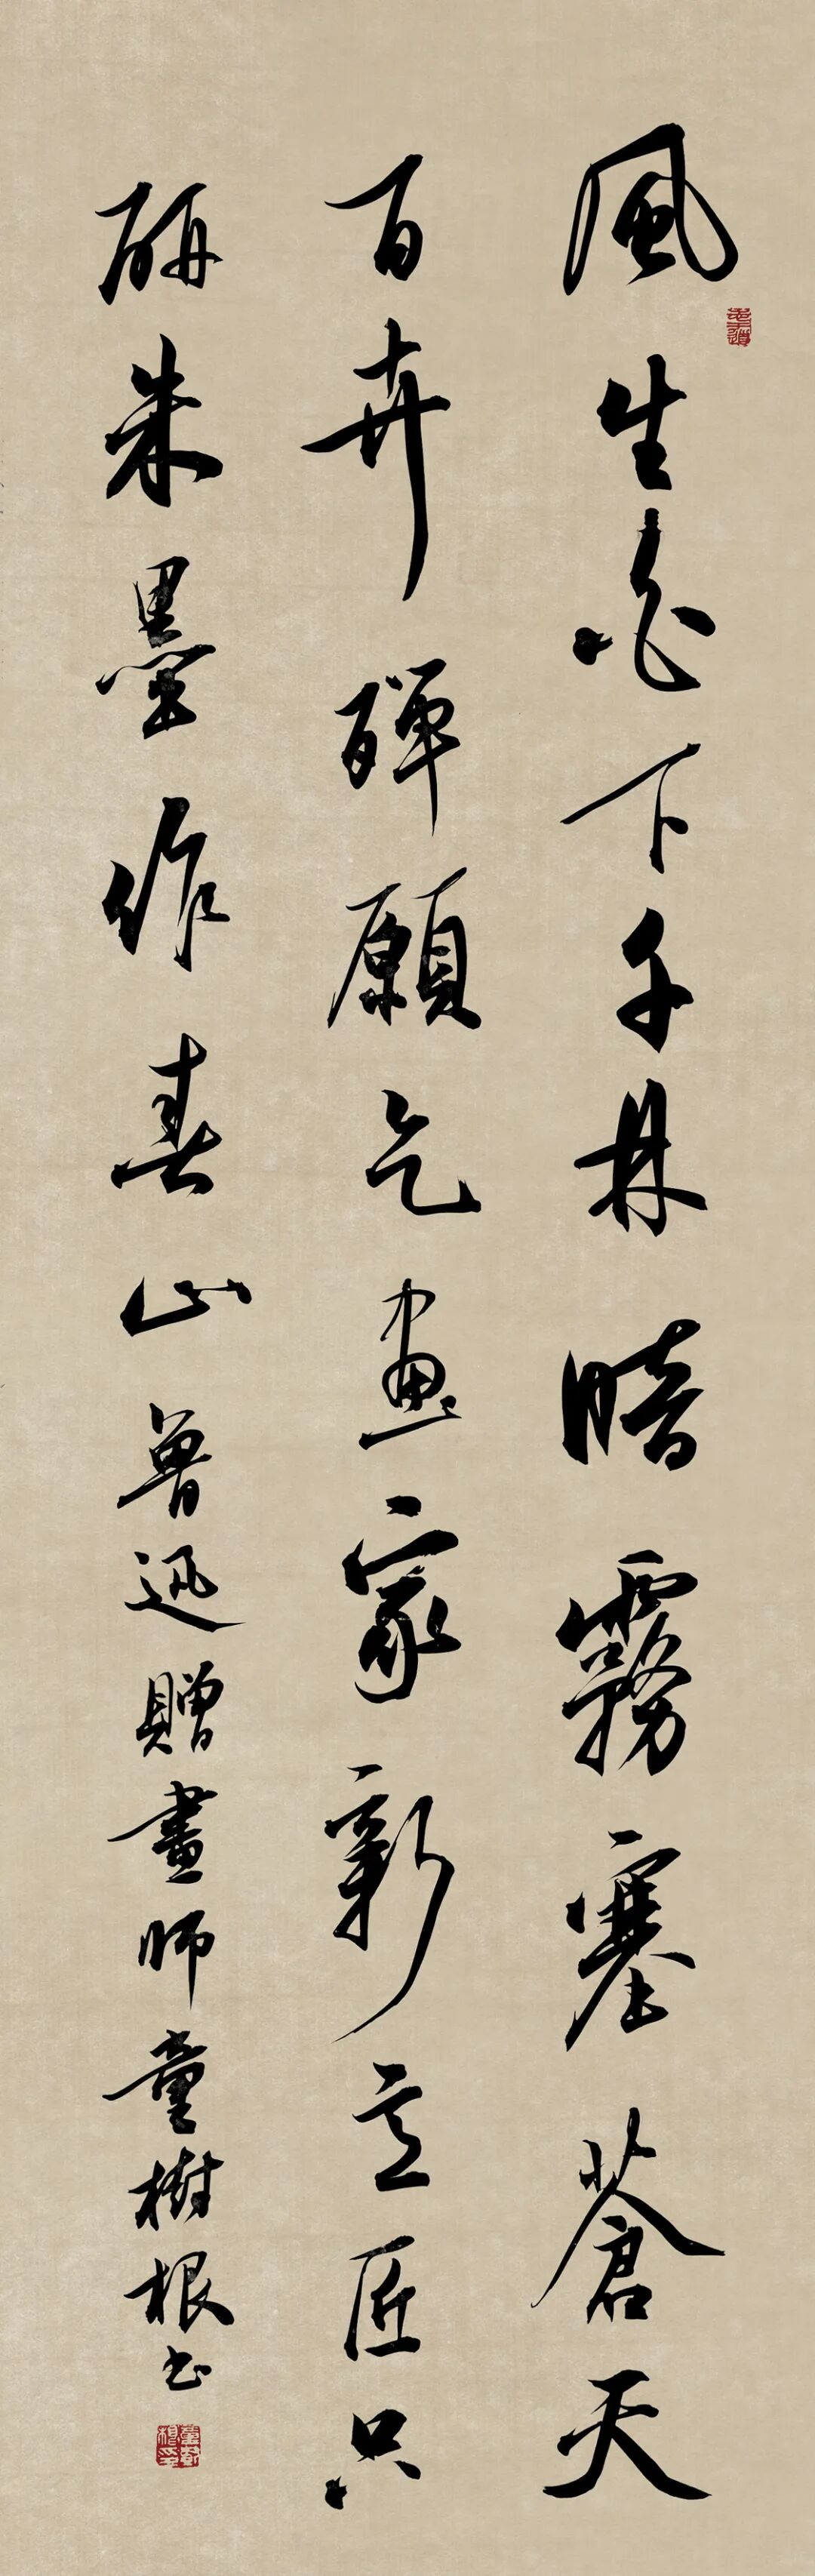 風生白下千林暗霧塞蒼天
百卉殫願乞畫家新意匠只
硏朱墨作春山魯迅贈畫師童樹根书